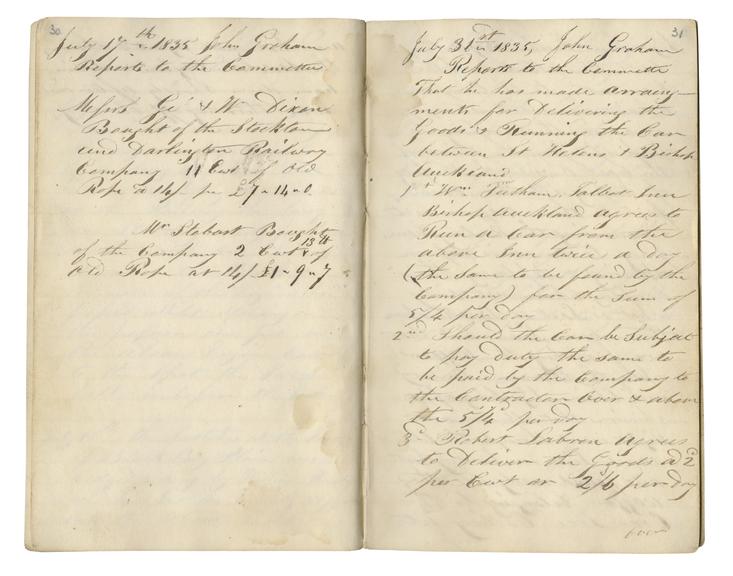 30
July 17th 1835 John Graham
Reports to the Committee
Messrs Geo & Wm Dixon
Bought of the Stockton
and Darlington Railway
Company 11 Cwt of Old
Rope a 14/ per £7 " 14 " 0
Mr Stobart Bought
of the Company 2 Cwt 13 lb of
old Rope at 14/ £1 " 9 " 7
31
July 31st 1835, John Graham
Reports to the Committee
That he has made arrange-
ments for Delivering the
Goods & Running the Car
between St Helens & Bishop
Auckland
1st Wm Talbot Inn
Bishop Auckland agrees to
Run a Car from the
above Inn twice a day
(the same to be found by the
Company) for the Sum of
5/4 per day
2nd Should the Car be Subject
to pay duty the same to
be paid by the Company to
the Contractor Over & above
the 5/4 per day
3d Robert agrees
to Deliver the Goods a 2d
per Cwt or 2/6 per day
over